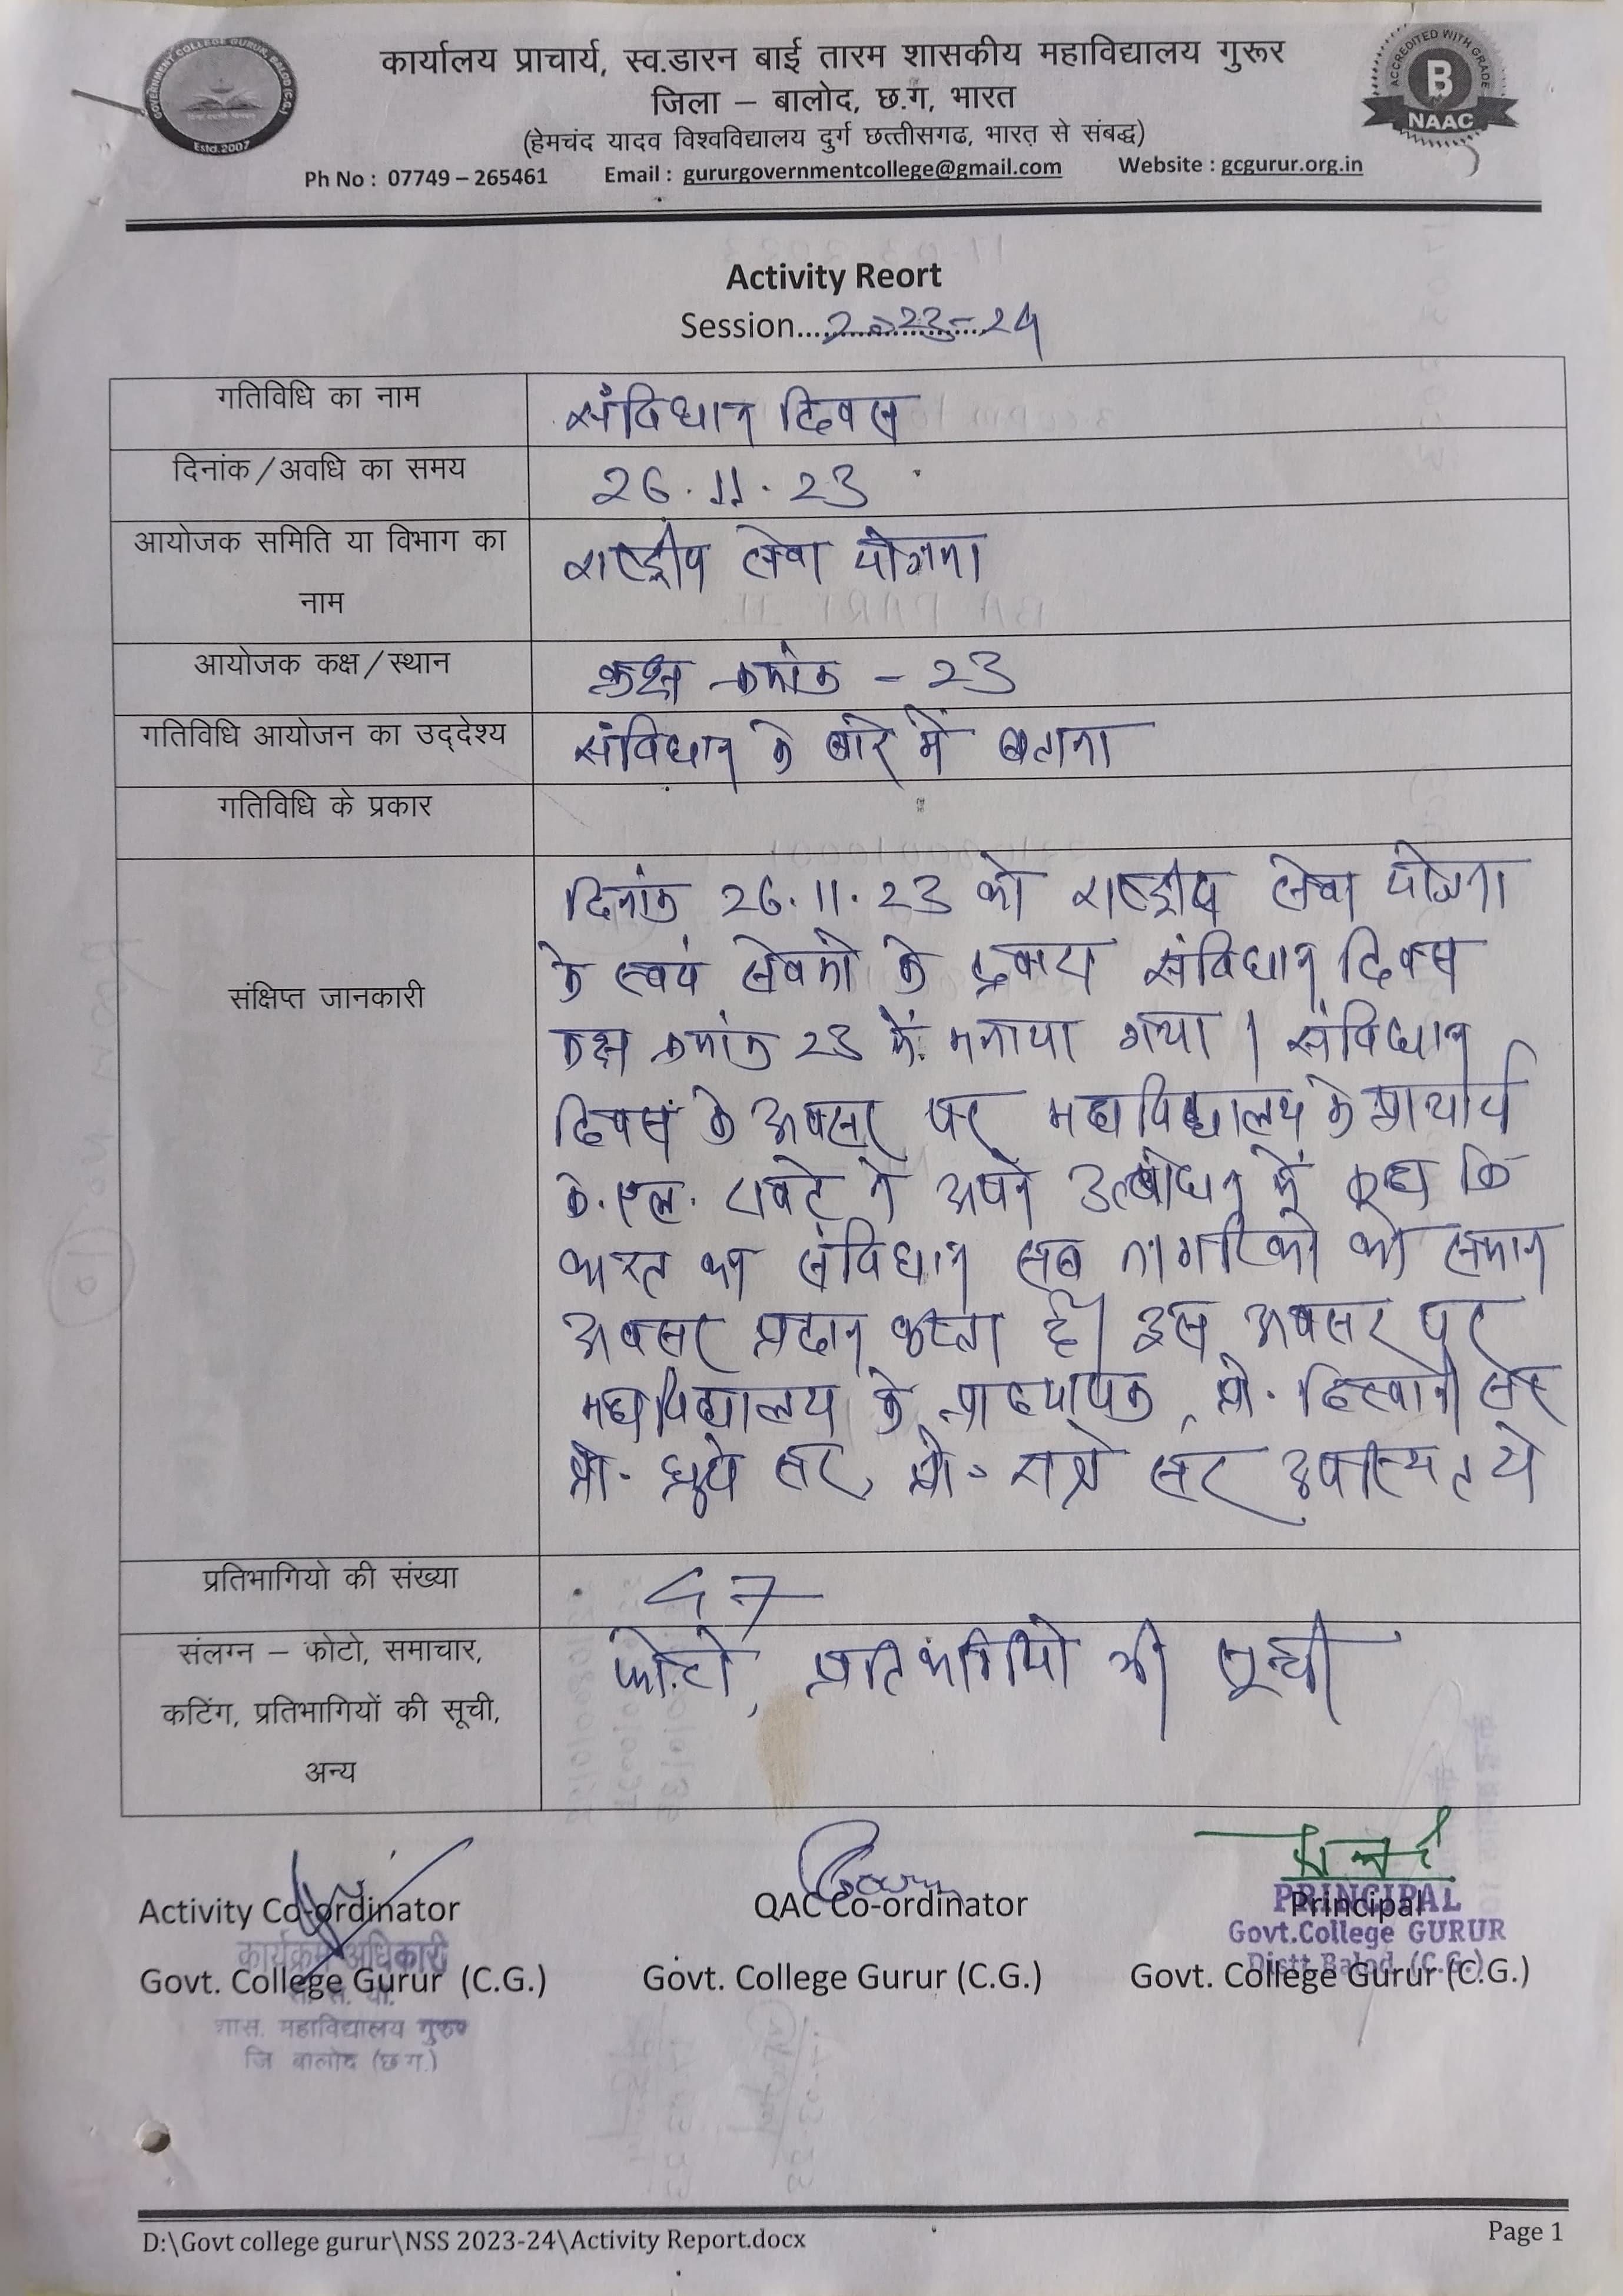 GOVERNMENT COLLEGE GURUR, BALOD (C.G.)
Estd.2007
कार्यालय प्राचार्य, स्व.डारन बाई तारम शासकीय महाविद्यालय गुरूर
जिला – बालोद, छ.ग, भारत
(हेमचंद यादव विश्वविद्यालय दुर्ग छत्तीसगढ, भारत् से संबद्ध)
Ph No : 07749 – 265461 Email : gururgovernmentcollege@gmail.com Website : gcgurur.org.in
ACCREDITED WITH GRADE
B
NAAC
Activity Reort
Session....2023-24
गतिविधि का नाम संविधान दिवस
दिनांक/अवधि का समय 26.11.23
आयोजक समिति या विभाग का
नाम
राष्ट्रीय सेवा योजना
आयोजक कक्ष/स्थान कक्ष क्रमांक - 23
गतिविधि आयोजन का उद्देश्य संविधान के बारे में बताना
गतिविधि के प्रकार
संक्षिप्त जानकारी
दिनांक 26.11.23 को राष्ट्रीय सेवा योजना
के स्वयं सेवको के द्वारा संविधान दिवस
कक्ष क्रमांक 23 में मनाया गया। संविधान
दिवस के अवसर पर महाविद्यालय के प्राचार्य
के.एल. रावटे ने अपने उद्बोधन में कहा कि
भारत का संविधान सब नागरिको को समान
अवसर प्रदान करता है। इस अवसर पर
महाविद्यालय के प्राध्यापक, प्रो. सर
प्रो. धुर्वे सर, प्रो. सर उपस्थित थे
प्रतिभागियो की संख्या 47
संलग्न – फोटो, समाचार,
कटिंग, प्रतिभागियों की सूची,
अन्य
फोटो, प्रतिभागियो की सूची
Activity Co-ordinator QAC Co-ordinator Principal
Govt. College Gurur (C.G.) Govt. College Gurur (C.G.) Govt. College Gurur (C.G.)
कार्यक्रम अधिकारी
रा. से. यो.
शास. महाविद्यालय गुरूर
जि बालोद (छ.ग.)
PRINCIPAL
Govt.College GURUR
Distt.Balod (C.G.)
D:\Govt college gurur\NSS 2023-24\Activity Report.docx Page 1